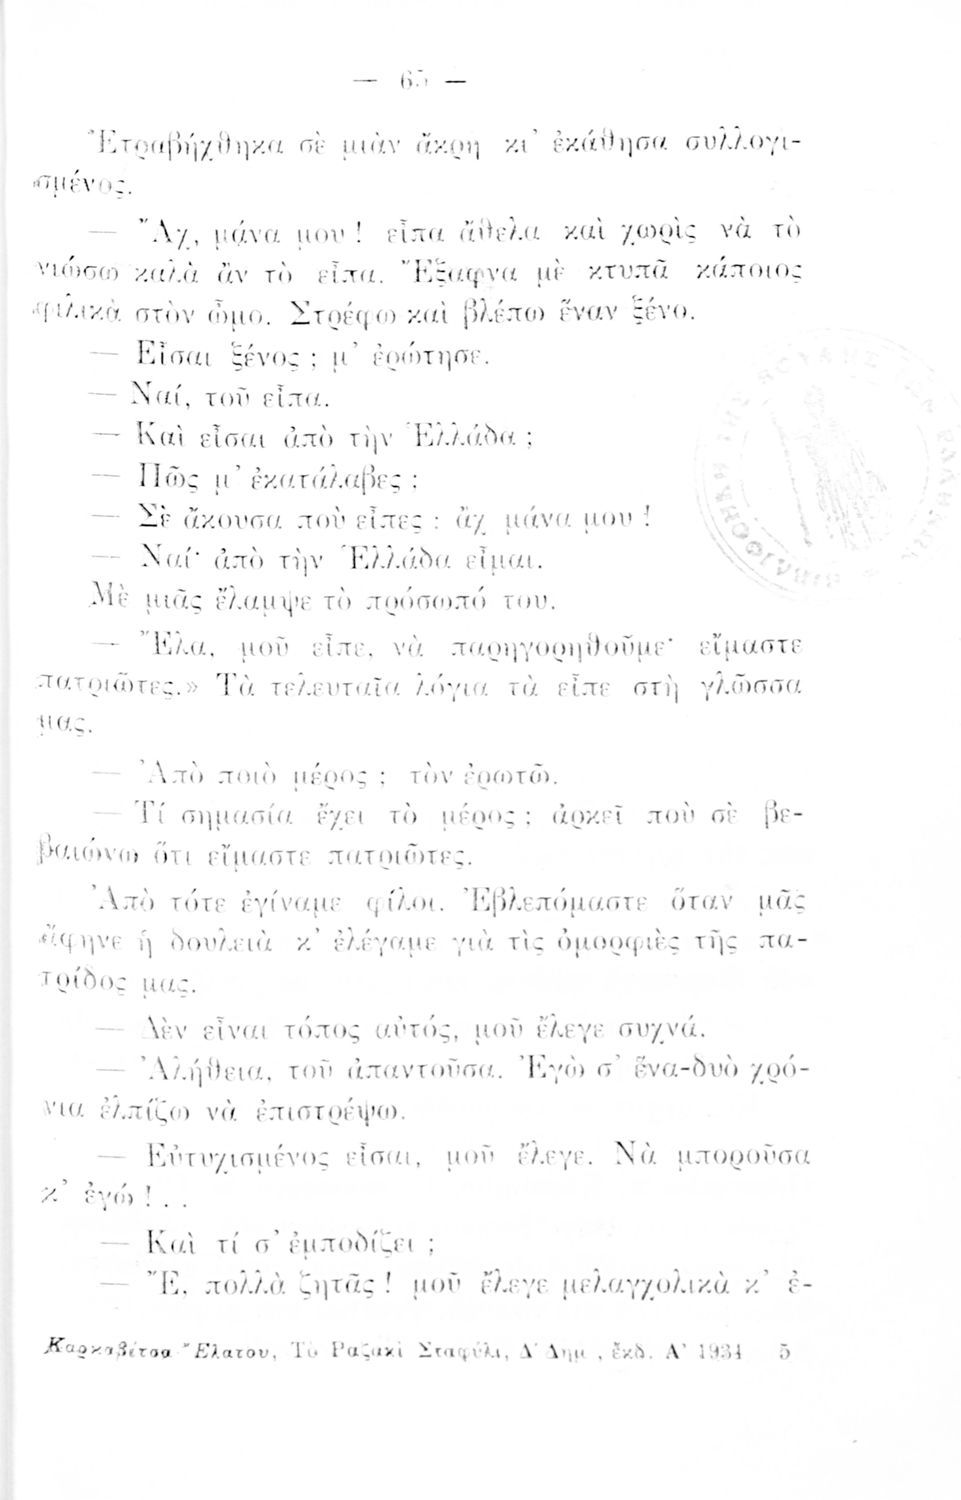 — 65 —
Ἐτραβήχθηκα σὲ μιὰν ἄκρη κι᾿ ἐκάθησα συλλογι-
σμένος.
— Ἄχ, μάνα μου! εἶπα ἄθελα καὶ χωρὶς νὰ τὸ
νιώσω καλὰ ἂν τὸ εἶπα. Ἔξαφνα μὲ κτυπᾶ κάποιος
φιλικὰ στὸν ὦμο. Στρέφω καὶ βλέπω ἕναν ξένο.
— Εἶσαι ξένος; μ᾿ ἐρώτησε.
— Ναί, τοῦ εἶπα.
— Καὶ εἶσαι ἀπὸ τὴν Ἑλλάδα;
— Πῶς μ᾿ ἐκατάλαβες;
— Σὲ ἄκουσα ποὺ εἶπες: ἄχ μάνα μου!
— Ναί· ἀπὸ τὴν Ἑλλάδα εἶμαι.
Μὲ μιᾶς ἔλαμψε τὸ πρόσωπό του.
— Ἔλα, μοῦ εἶπε, νὰ παρηγορηθοῦμε· εἴμαστε
πατριῶτες.» Τὰ τελευταῖα λόγια τὰ εἶπε στὴ γλῶσσα
μας.
— Ἀπὸ ποιὸ μέρος; τὸν ἐρωτῶ.
— Τί σημασία ἔχει τὸ μέρος; ἀρκεῖ ποὺ σὲ βε-
βαιώνω ὅτι εἴμαστε πατριῶτες.
Ἀπὸ τότε ἐγίναμε φίλοι. Ἐβλεπόμαστε ὅταν μᾶς
ἄφηνε ἡ δουλειὰ κ᾿ ἐλέγαμε γιὰ τὶς ὀμορφιὲς τῆς πα-
τρίδος μας.
— Δὲν εἶναι τόπος αὐτός, μοῦ ἔλεγε συχνά.
— Ἀλήθεια, τοῦ ἀπαντοῦσα. Ἐγὼ σ᾿ ἕνα-δυὸ χρό-
νια ἐλπίζω νὰ ἐπιστρέψω.
— Εὐτυχισμένος εἶσαι, μοῦ ἔλεγε. Νὰ μποροῦσα
κ᾿ ἐγώ!..
— Καὶ τί σ᾿ ἐμποδίζει;
— Ἔ, πολλὰ ζητᾶς! μοῦ ἔλεγε μελαγχολικὰ κ᾿ ἐ-
Καρκαβίτσα Ἐλατου, Τὸ Ραζακὶ Σταφύλι, Δ΄ Δημ., ἔκδ. Α΄ 1934 5
ΒΙΒΛΙΟΘΗΚΗ ΤΗΣ ΒΟΥΛΗΣ ΤΩΝ ΕΛΛΗΝΩΝ